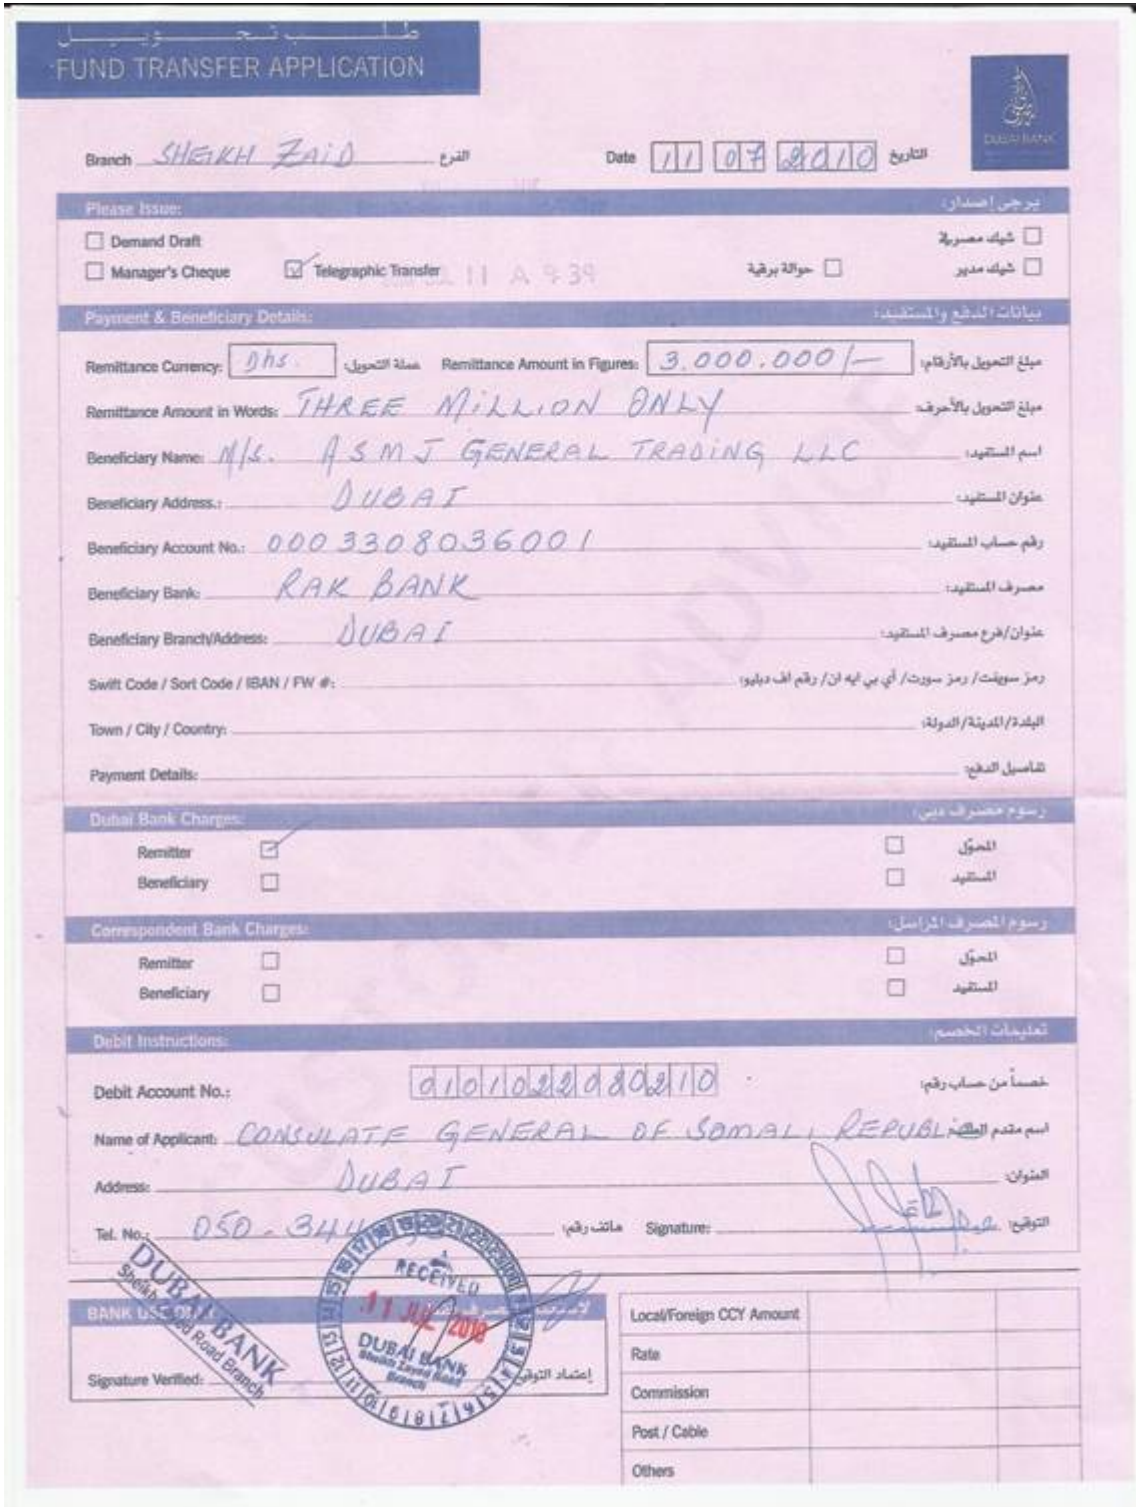 طلب تحويل
FUND TRANSFER APPLICATION
DUBAI BANK
Branch SHEIKH ZAID الفرع Date 11 07 2010 التاريخ
Please Issue: يرجى إصدار:
Demand Draft شيك مصرفي
Manager's Cheque Telegraphic Transfer حوالة برقية شيك مدير
11 A 9:39
Payment & Beneficiary Details: بيانات الدفع والمستفيد:
Remittance Currency: Dhs. عملة التحويل: Remittance Amount in Figures: 3.000.000/- مبلغ التحويل بالأرقام:
Remittance Amount in Words: THREE MILLION ONLY مبلغ التحويل بالأحرف:
Beneficiary Name: M/S. ASMJ GENERAL TRADING LLC اسم المستفيد:
Beneficiary Address.: DUBAI عنوان المستفيد:
Beneficiary Account No.: 0003308036001 رقم حساب المستفيد:
Beneficiary Bank: RAK BANK مصرف المستفيد:
Beneficiary Branch/Address: DUBAI عنوان/فرع مصرف المستفيد:
Swift Code / Sort Code / IBAN / FW #: رمز سويفت/ رمز سورت/ أي بي ايه ان/ رقم اف دبليو:
Town / City / Country: البلدة/المدينة/الدولة:
Payment Details: تفاصيل الدفع:
Dubai Bank Charges: رسوم مصرف دبي:
Remitter المحوّل
Beneficiary المستفيد
Correspondent Bank Charges: رسوم المصرف المراسل:
Remitter المحوّل
Beneficiary المستفيد
Debit Instructions: تعليمات الخصم:
Debit Account No.: 0101022080210 خصماً من حساب رقم:
Name of Applicant: CONSULATE GENERAL OF SOMALI REPUBLIC اسم مقدم الطلب
Address: DUBAI العنوان:
Tel. No.: 050-344 هاتف رقم: Signature: التوقيع:
DUBAI BANK
Sheikh Zayed Road Branch
RECEIVED
11 JUL 2010
DUBAI BANK
Sheikh Zayed Road
Branch
BANK USE ONLY
Signature Verified: إعتماد التوقيع
Local/Foreign CCY Amount
Rate
Commission
Post / Cable
Others
CUSTOMER ADVICE